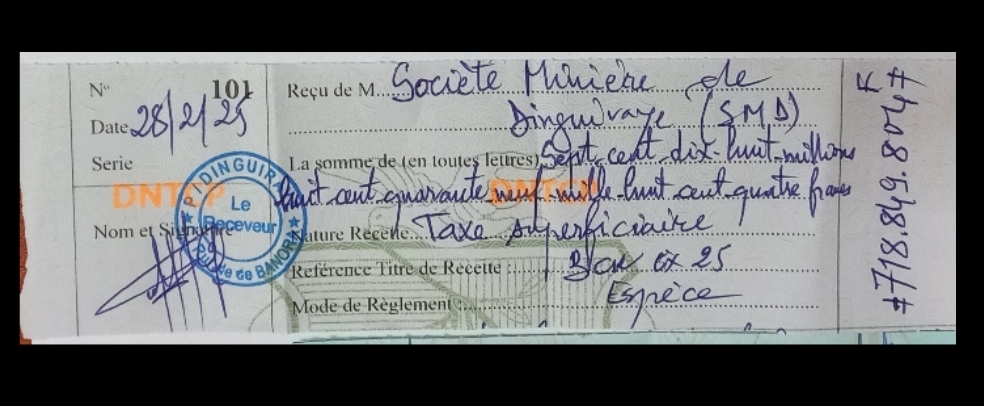 N° 101
Date 28/2/25
Serie
DNTCP
Nom et Signature
P/DINGUIRAYE
Le
Receveur
de BANORA
Reçu de M. Societe Minière de
Dinguiraye (SMD)
La somme de (en toutes lettres) Sept cent dix-huit millions
huit cent quarante neuf mille huit cent quatre francs
DNTCP
Nature Recette Taxe superficiaire
Reférence Titre de Recette : Bon ex 25
Mode de Règlement : Espèce
#718.849.804# F